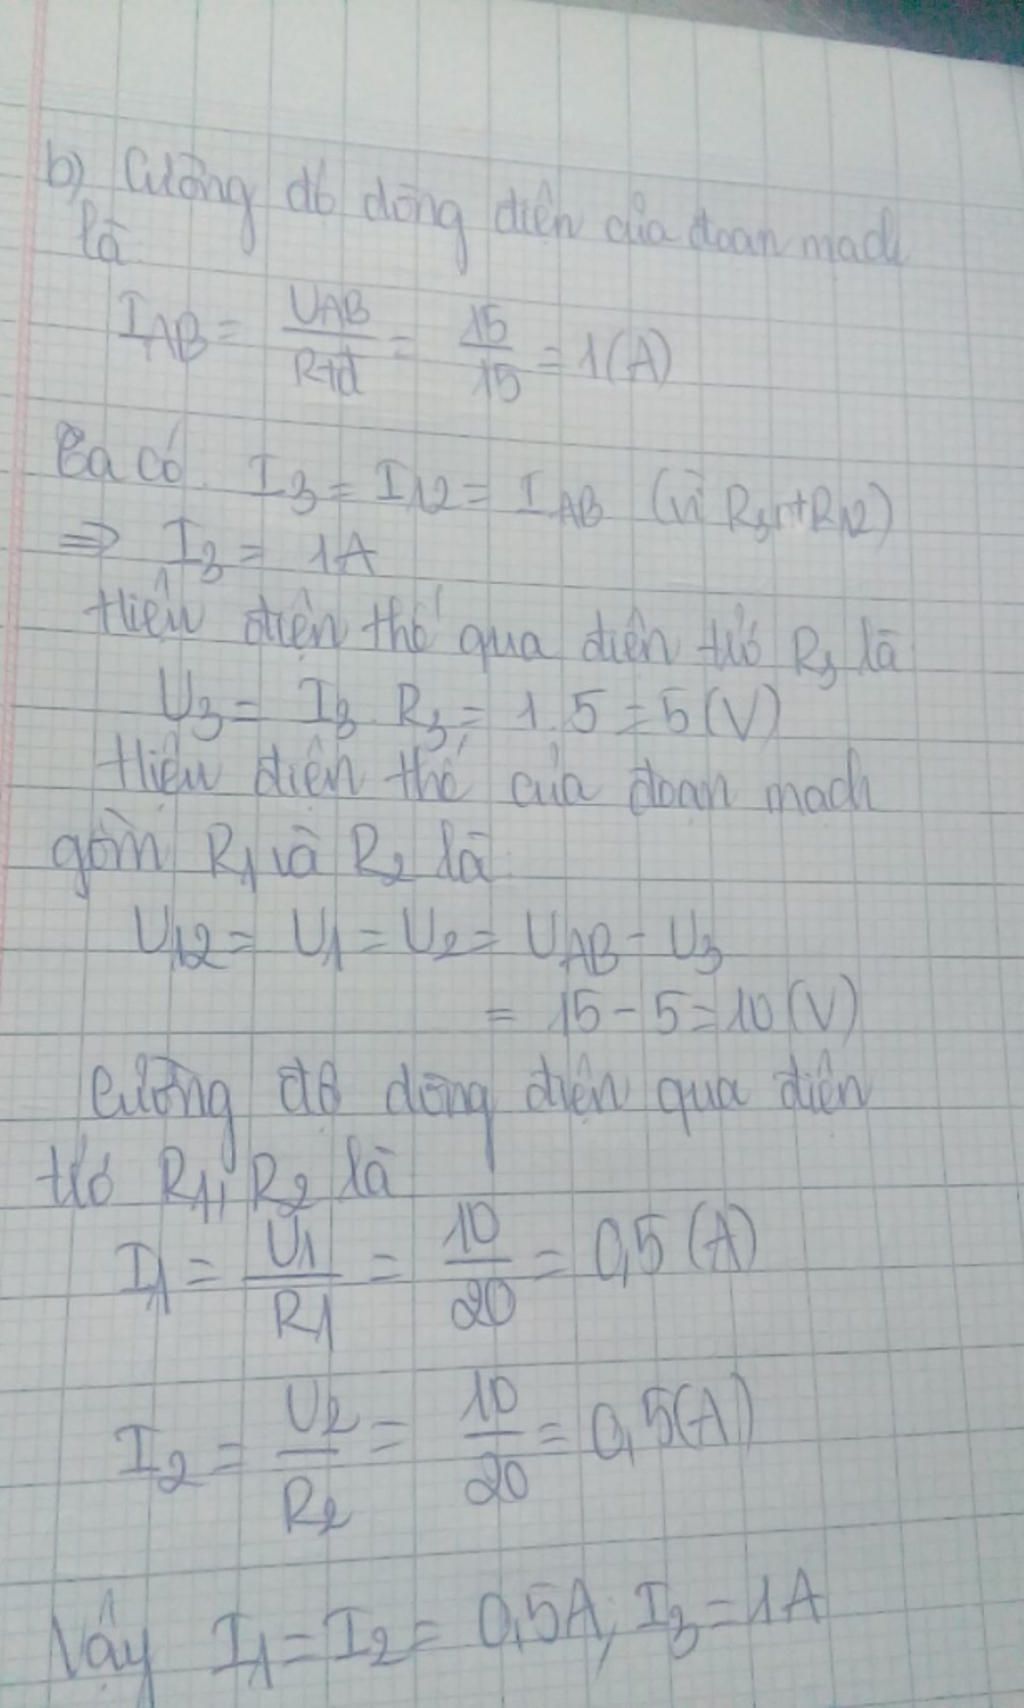 b) Cường độ dòng điện của đoạn mạch
là
I_AB = U_AB / R_tđ = 15 / 15 = 1 (A)
Ta có I_3 = I_12 = I_AB (vì R_3 nt R_12)
⇒ I_3 = 1A
Hiệu điện thế qua điện trở R_3 là
U_3 = I_3 . R_3 = 1 . 5 = 5 (V)
Hiệu điện thế của đoạn mạch
gồm R_1 và R_2 là
U_12 = U_1 = U_2 = U_AB - U_3
= 15 - 5 = 10 (V)
Cường độ dòng điện qua điện
trở R_1, R_2 là
I_1 = U_1 / R_1 = 10 / 20 = 0,5 (A)
I_2 = U_2 / R_2 = 10 / 20 = 0,5 (A)
Vậy I_1 = I_2 = 0,5A, I_3 = 1A